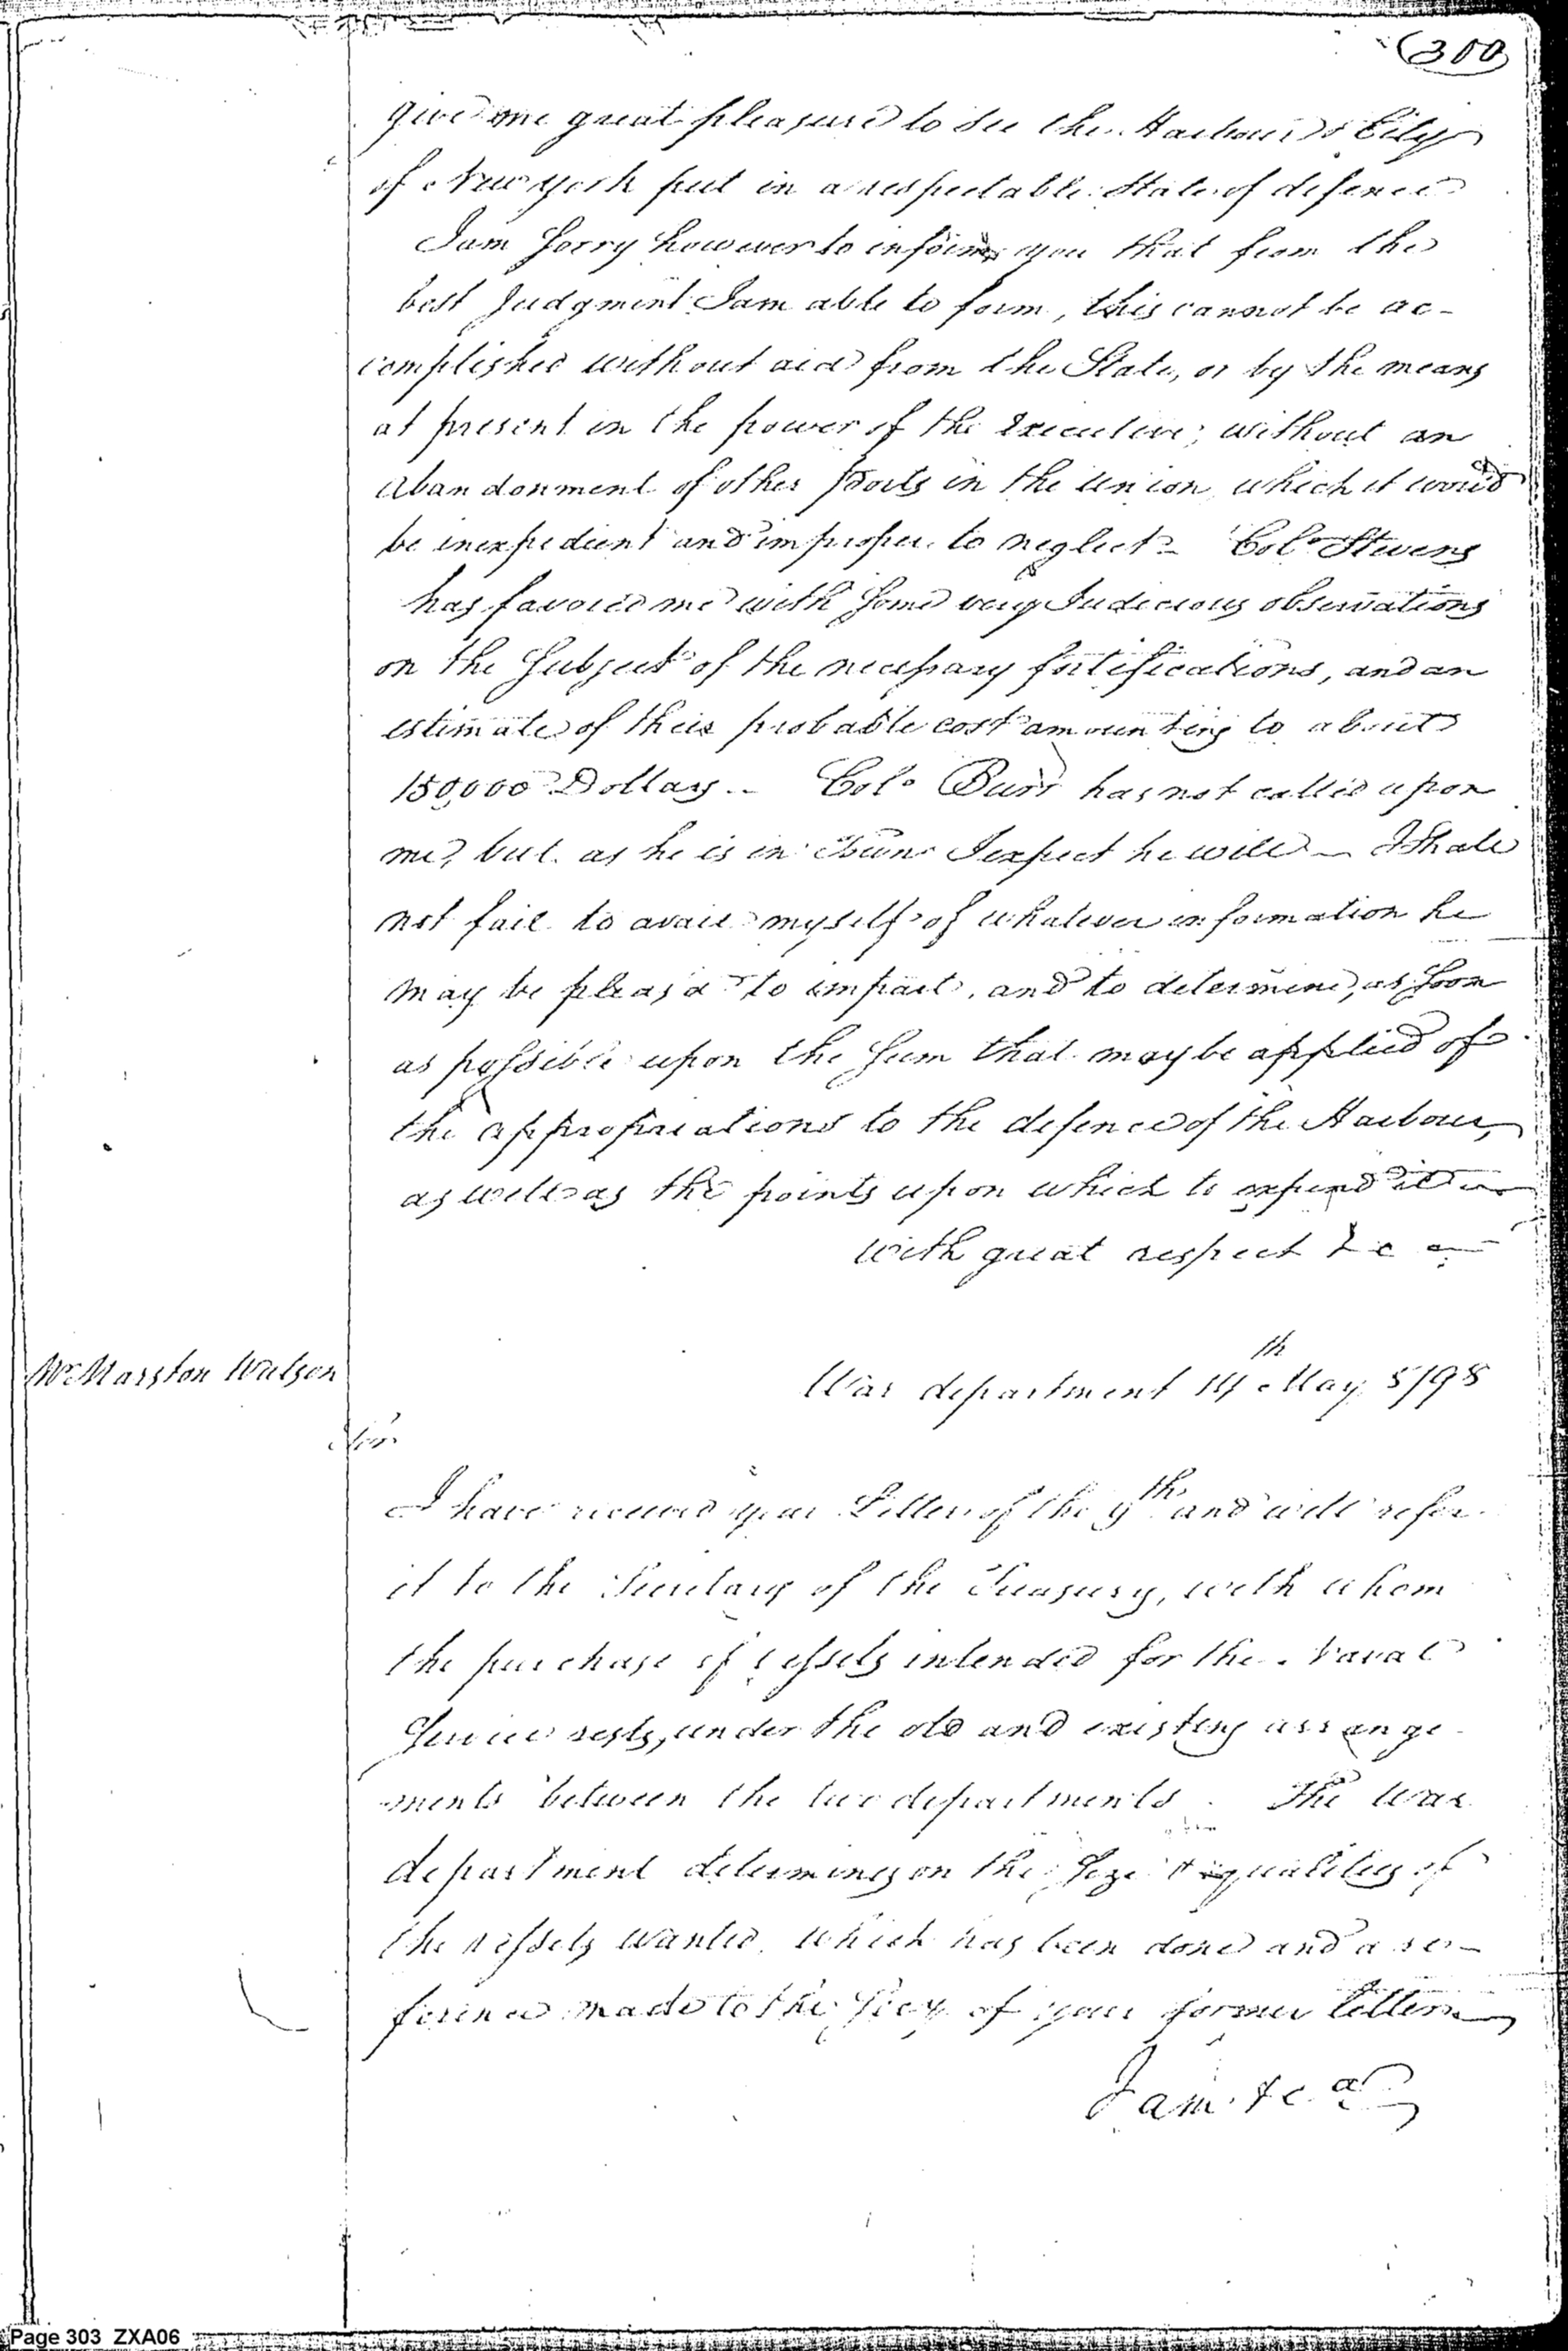 300
give me great pleasure to see the Harbour & City
of New york put in a respectable State of defence
I am Sorry however to inform you that from the
best Judgment I am able to form, this cannot be ac-
complished without aid from the State, or by the means
at present in the power of the Executive; without an
abandonment of other Ports in the Union which it would
be inexpedient and improper to neglect - Colo Stevens
has favored me with Some very Judicious observations
on the Subject of the necessary fortifications, and an
estimate of their probable cost amounting to about
150,000 Dollars - Colo Burr has not called upon
me, but as he is in Town I expect he will - I Shall
not fail to avail myself of whatever information he
may be pleas'd to impart, and to determine, as Soon
as possible upon the Sum that may be applied of
the appropriations to the defence of the Harbour,
as well as the points upon which to expend it
with great respect &c a
Mr Marston Watson
War department 14th May 1798
Sir
I have received your Letter of the 9th and will refer
it to the Secretary of the Treasury, with whom
the purchase of vessels intended for the Naval
Service rests, under the old and existing arrange-
ments between the two departments. The War
department determines on the Size & qualities of
the vessels wanted, which has been done and a re-
ference made to the Secy of your former letter
I am &c a
Page 303 ZXA06